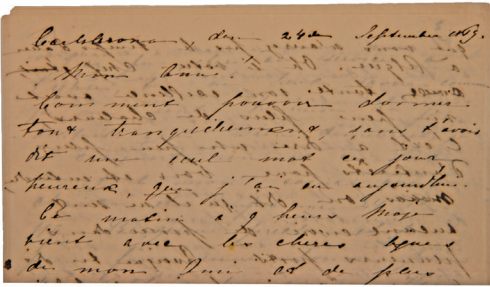 Carlskrona den 24de September 1869.
Mon Ami!
Comment pouvoir dormir
tout tranquillement sans t'avoir
dit un seul mot ce jour
heureux, que j'ai eu aujourd'hui.
Ce matin à 9 heurs
vient avec les chères lignes
de mon Ami et de plus